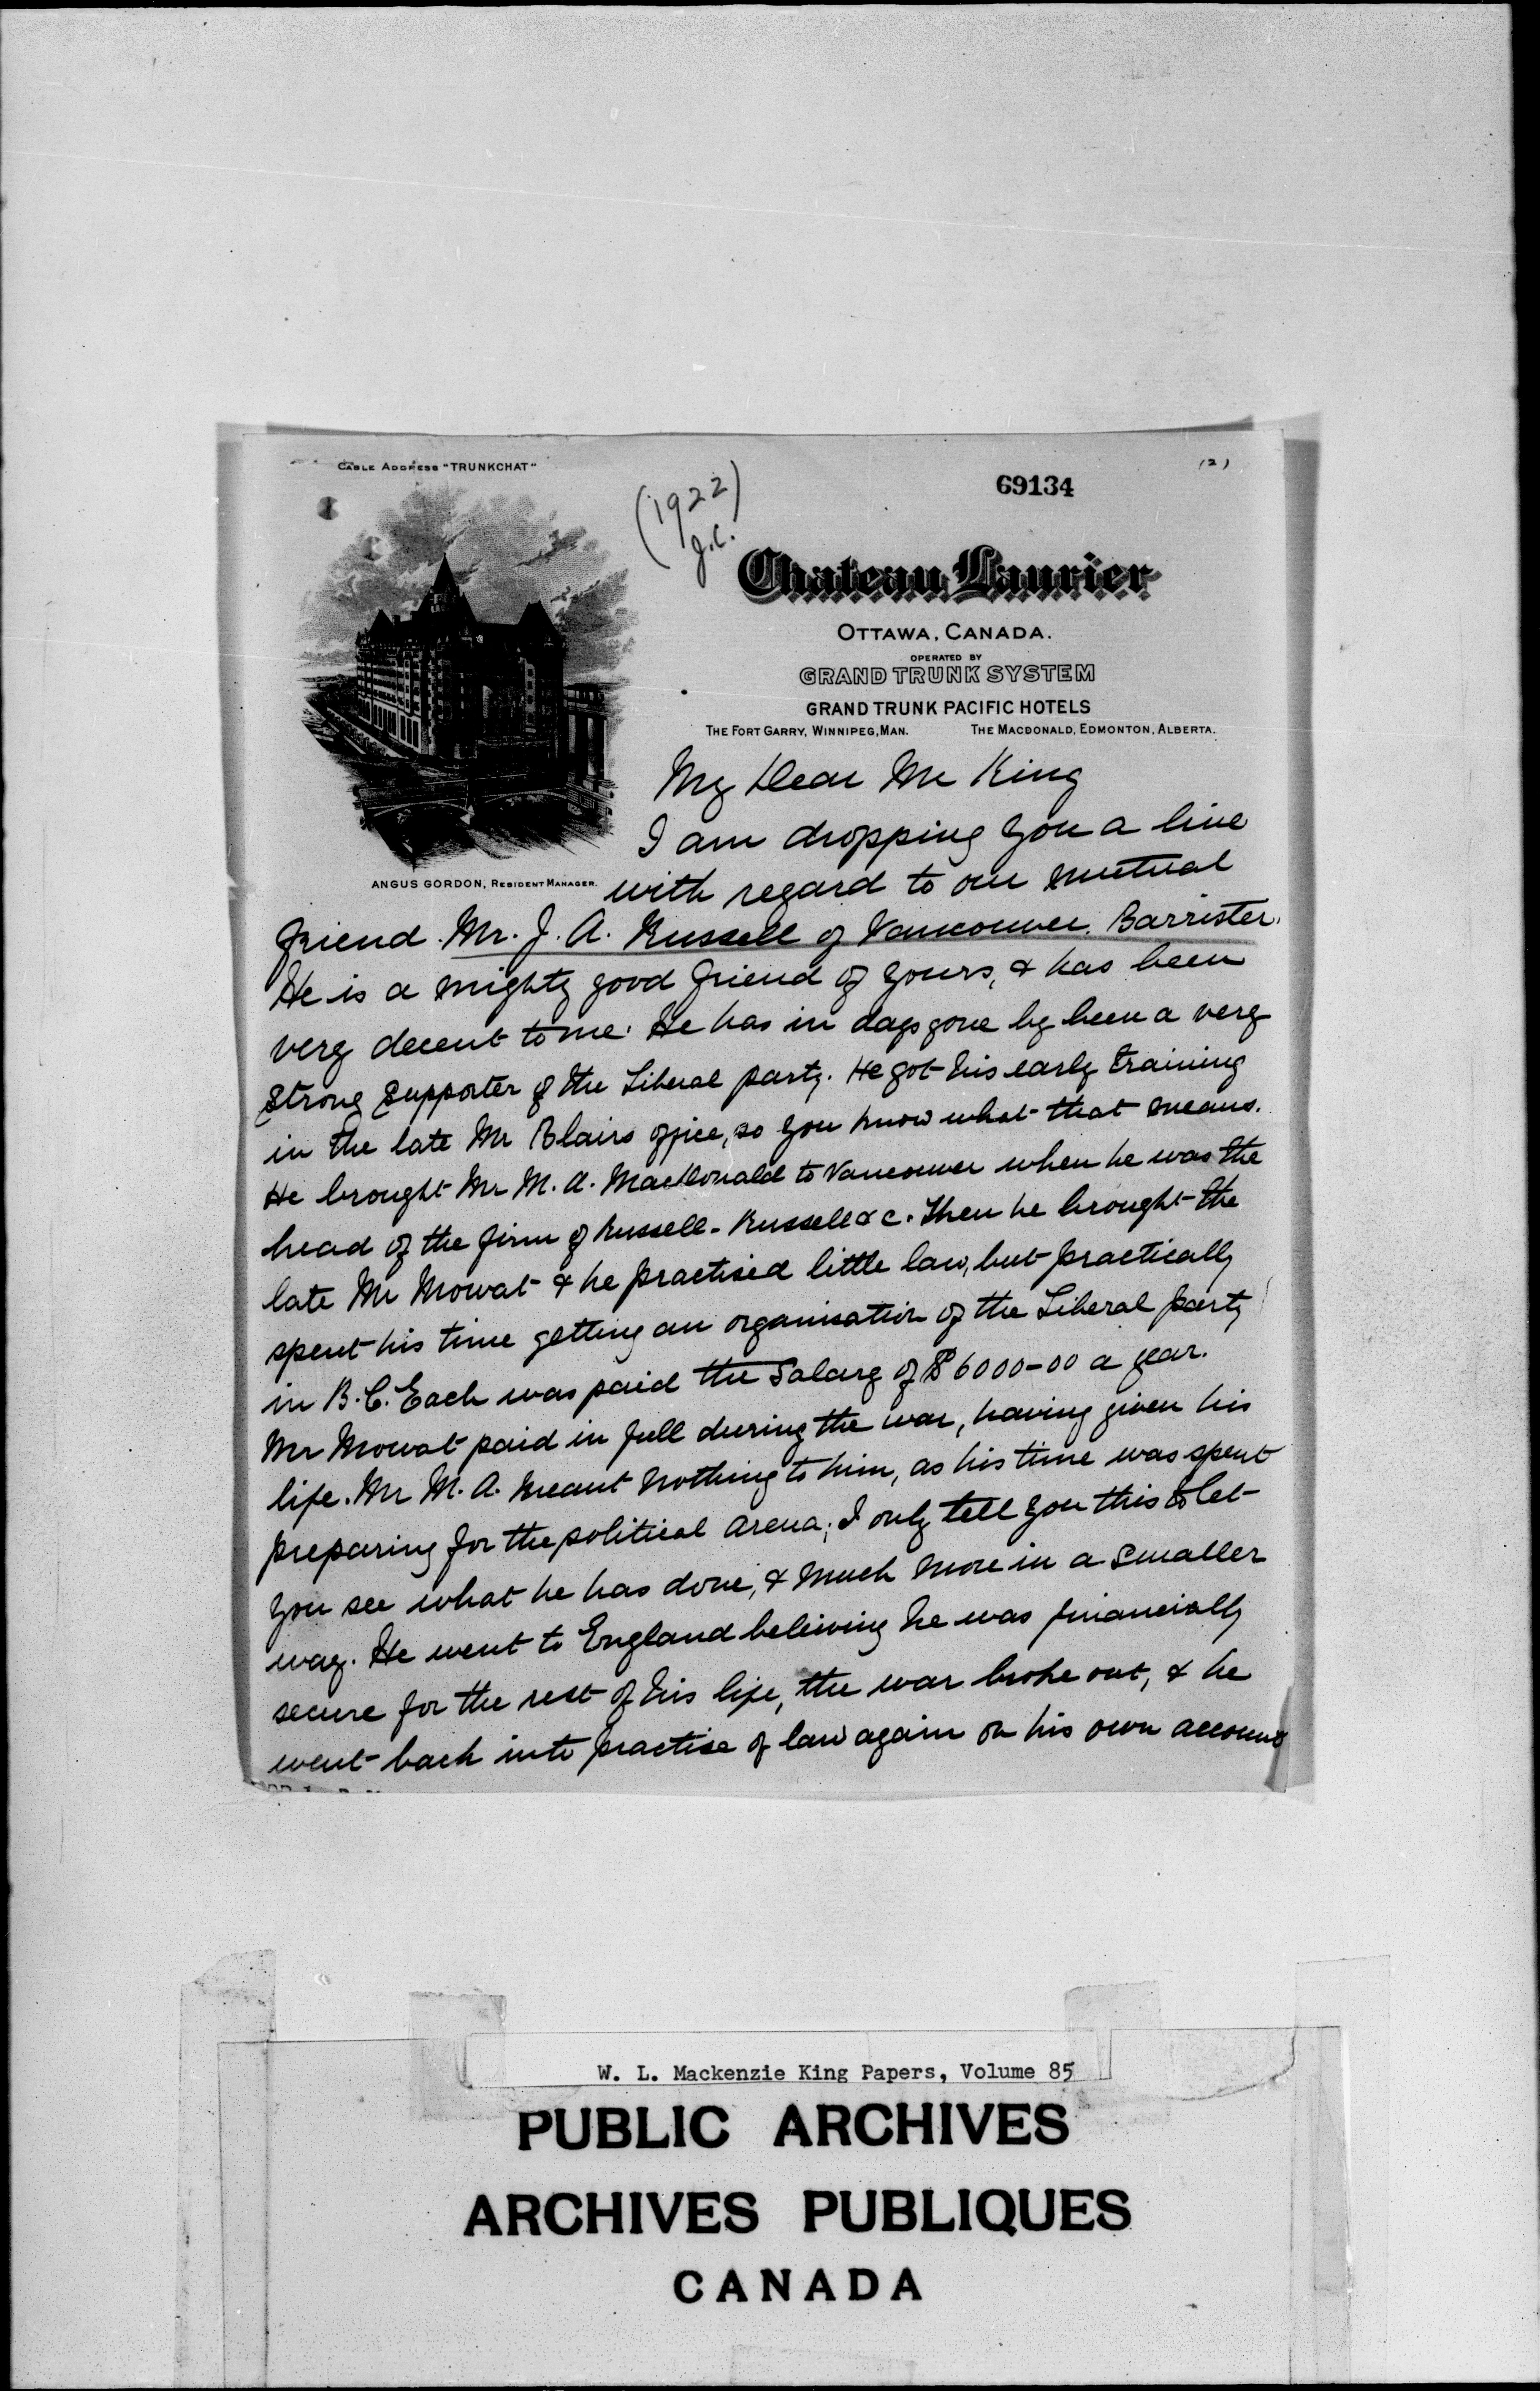 CABLE ADDRESS "TRUNKCHAT"
(2)
69134
(1922)
J.C.
Chateau Laurier
OTTAWA, CANADA.
OPERATED BY
GRAND TRUNK SYSTEM
GRAND TRUNK PACIFIC HOTELS
THE FORT GARRY, WINNIPEG, MAN. THE MACDONALD, EDMONTON, ALBERTA.
ANGUS GORDON, RESIDENT MANAGER.
My Dear Mr King
I am dropping you a line
with regard to our mutual
friend Mr. J. A. Russell of Vancouver, Barrister.
He is a mighty good friend of yours, & has been
very decent to me. He has in days gone by been a very
strong supporter of the Liberal party. He got his early training
in the late Mr Blairs office, so you know what that means.
He brought Mr M. A. MacDonald to Vancouver when he was the
head of the firm of Russell - Russell & c. Then he brought the
late Mr Mowat & he practised little law, but practically
spent his time getting an organisation of the Liberal party
in B.C. Each was paid the salary of $6000-00 a year.
Mr Mowat paid in full during the war, having given his
life. Mr M. A. meant nothing to him, as his time was spent
preparing for the political arena; I only tell you this to let
you see what he has done, & much more in a smaller
way. He went to England beleiving he was financially
secure for the rest of his life, the war broke out, & he
went back into practise of law again on his own account
W. L. Mackenzie King Papers, Volume 85
PUBLIC ARCHIVES
ARCHIVES PUBLIQUES
CANADA